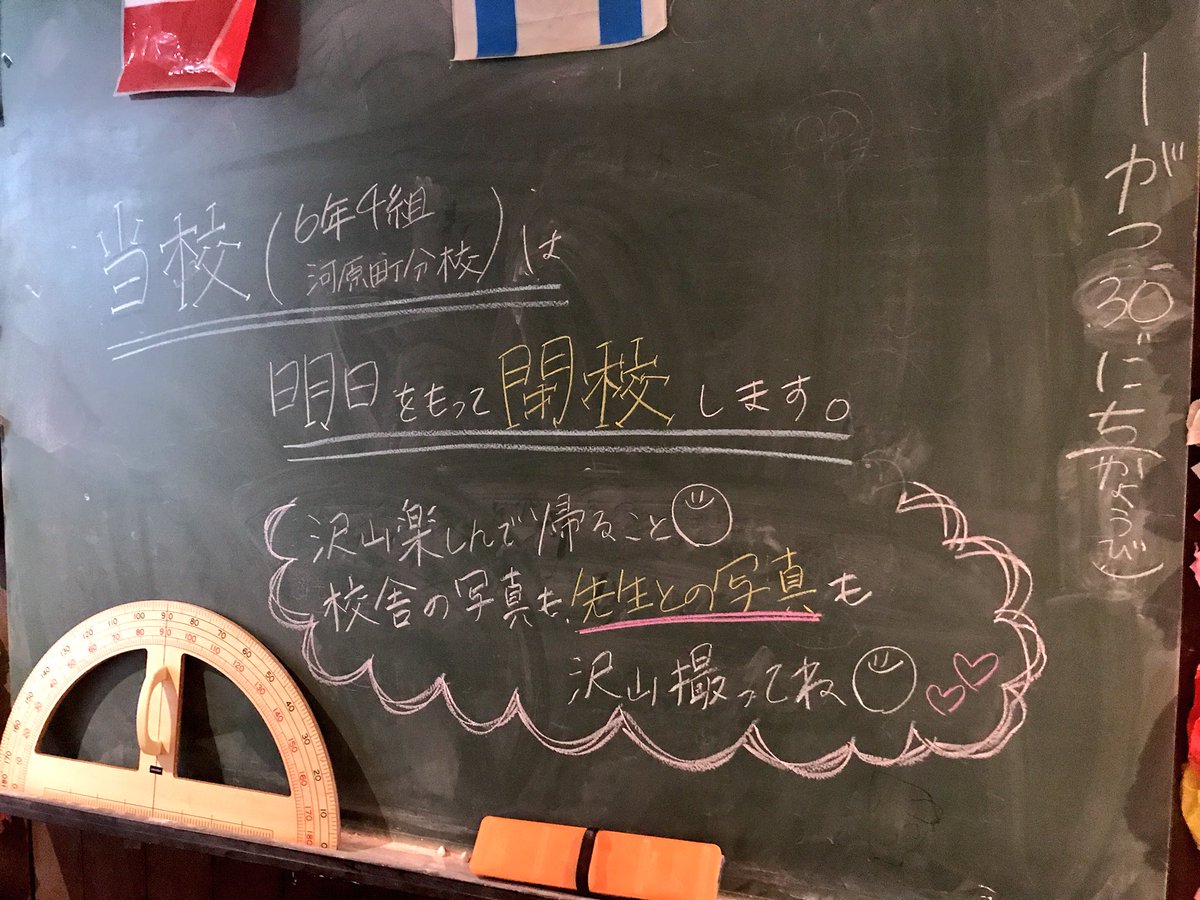 一がつ30にち(かようび)
当校(6年4組
河原町分校)は
明日をもって閉校します。
沢山楽しんで帰ること
校舎の写真も、先生との写真も
沢山撮ってね